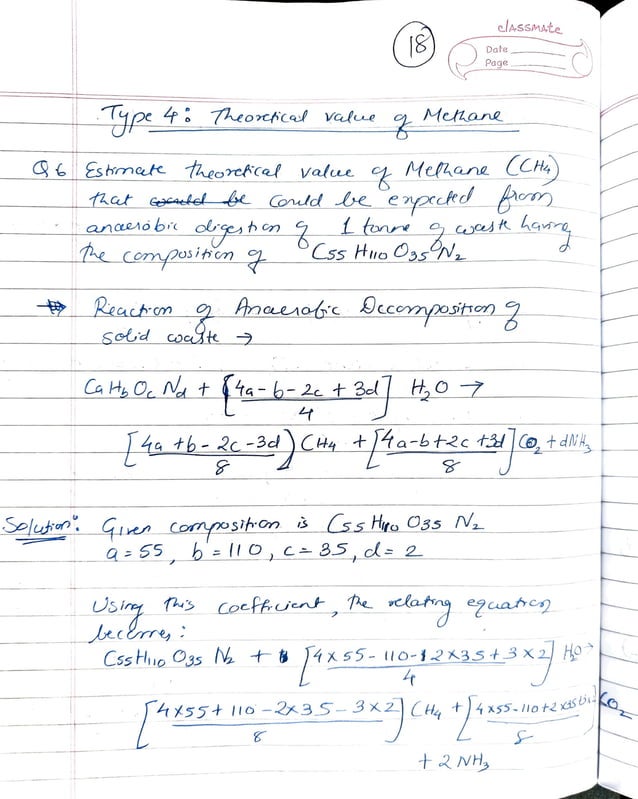 18
classmate
Date
Page
Type 4: Theoretical value of Methane
Q6 Estimate theoretical value of Methane (CH4)
that would be could be expected from
anaerobic digestion of 1 tonne of waste having
the composition of C55 H110 O35 N2
Reaction of Anaerobic Decomposition of
solid waste →
CaHbOcNd + [4a-b-2c+3d] H2O →
4
[4a+b-2c-3d) CH4 + [4a-b+2c+3d] CO2 + dNH3
8 8
Solution: Given composition is C55 H110 O35 N2
a=55, b=110, c=35, d=2
Using this coefficient, the relating equation
becomes:
C55H110 O35 N2 + [4×55-110-2×35+3×2] H2O→
4
[4×55+110-2×35-3×2] CH4 + [4×55-110+2×35+3×2] CO2
8 8
+ 2 NH3